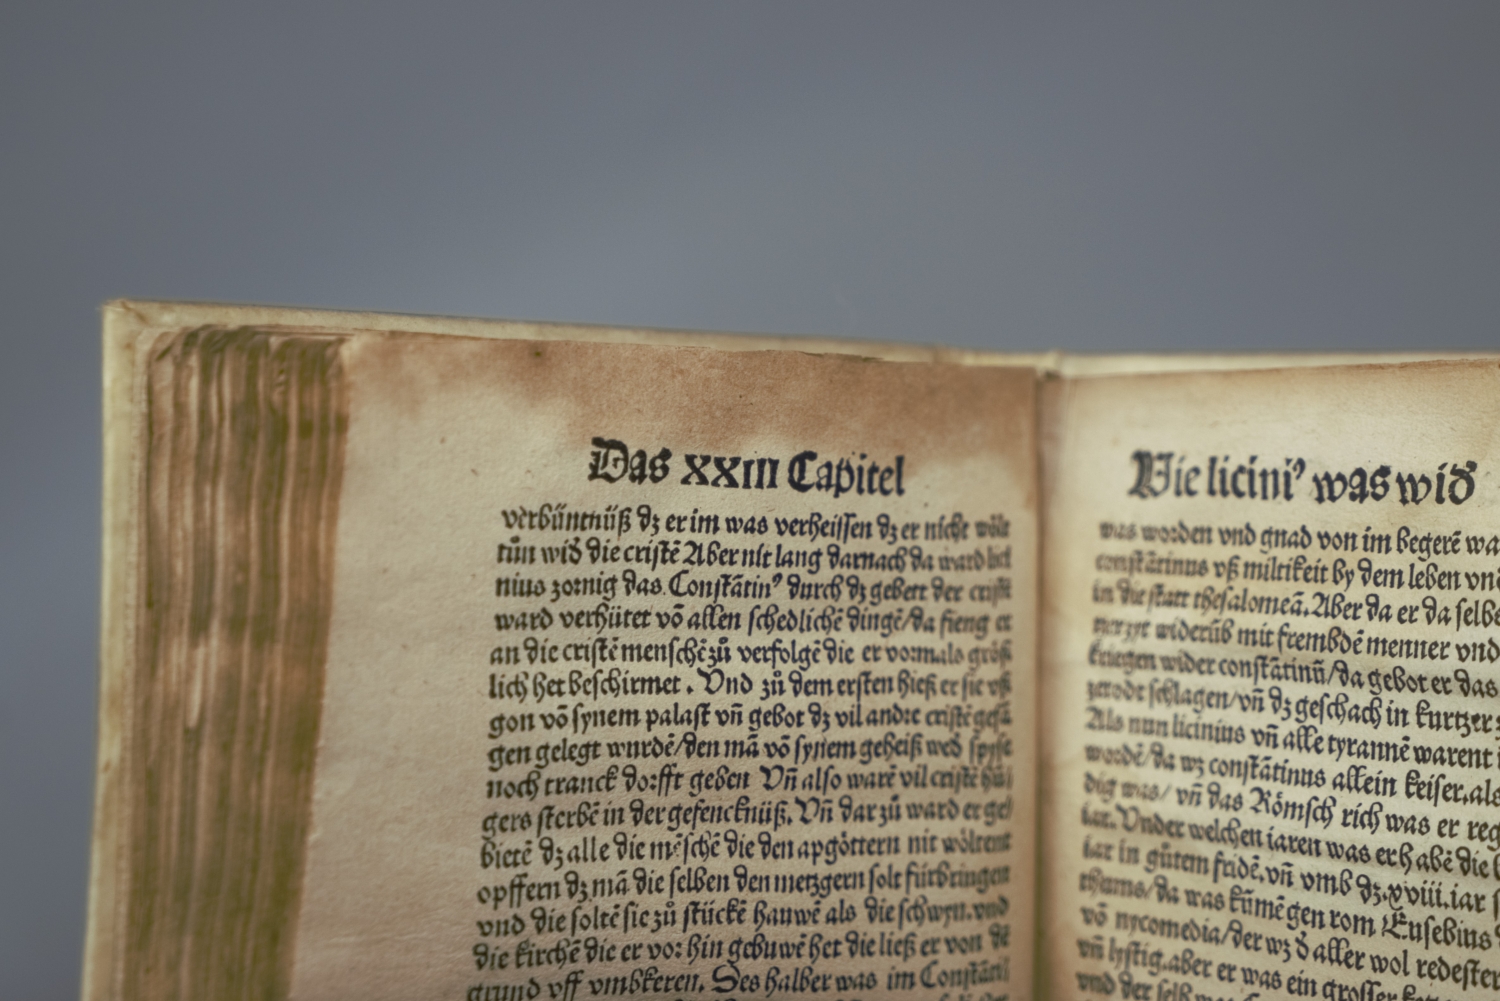 Das XXIII Capitel
verbüntnüß dz er im was verheissen dz er nicht wölt
tůn wið die cristē Aber nit lang darnach da ward lici
nius zornig das Constātin⁹ durch dz gebett der crist
ward verhütet vō allen schedlichē dingē/da fieng er
an die cristē menschē zů verfolgē die er vormals größ
lich het beschirmet. Vnd zů dem ersten hieß er sie vß
gon vō synem palast vñ gebot dz vil andre cristē gefā
gen gelegt wurdē/den mā vō synem geheiß weð spyse
noch tranck dorfft geben Vñ also warē vil cristē hū
gers sterbē in der gefencknüß. Vñ dar zů ward er ge
bietē dz alle die mēschē die den apgöttern nit wöltent
opffern dz mā die selben den metzgern solt fürbringen
vnd die soltē sie zů stückē hauwē als die schwyn. vnd
die kirchē die er vor hin gebuwē het die ließ er von dē
grund vff vmbkeren. Des halber was im Constāti
Wie licini⁹ was wið
was worden vnd gnad von im begerē wa
constātinus vß miltikeit by dem leben vnd
in die statt thesalomeā. Aber da er da selbs
widerūb mit frembdē menner vnd
kriegen wider constātinū/da gebot er das
schlagen/vñ dz geschach in kurtzer
Als nun licinius vñ alle tyrannē warent
wordē/da wz constātinus allein keiser. als
dig was/ vñ das Römsch rich was er reg
iar. Vnder welchen iaren was er h abē die
iar in gůtem fridē. vñ vmb dz. xviii. iar
da was kūmē gen rom Eusebius
vō nycomedia/der wz ð aller wol redester
vñ lystig. aber er was ein grosser
vnd der selb